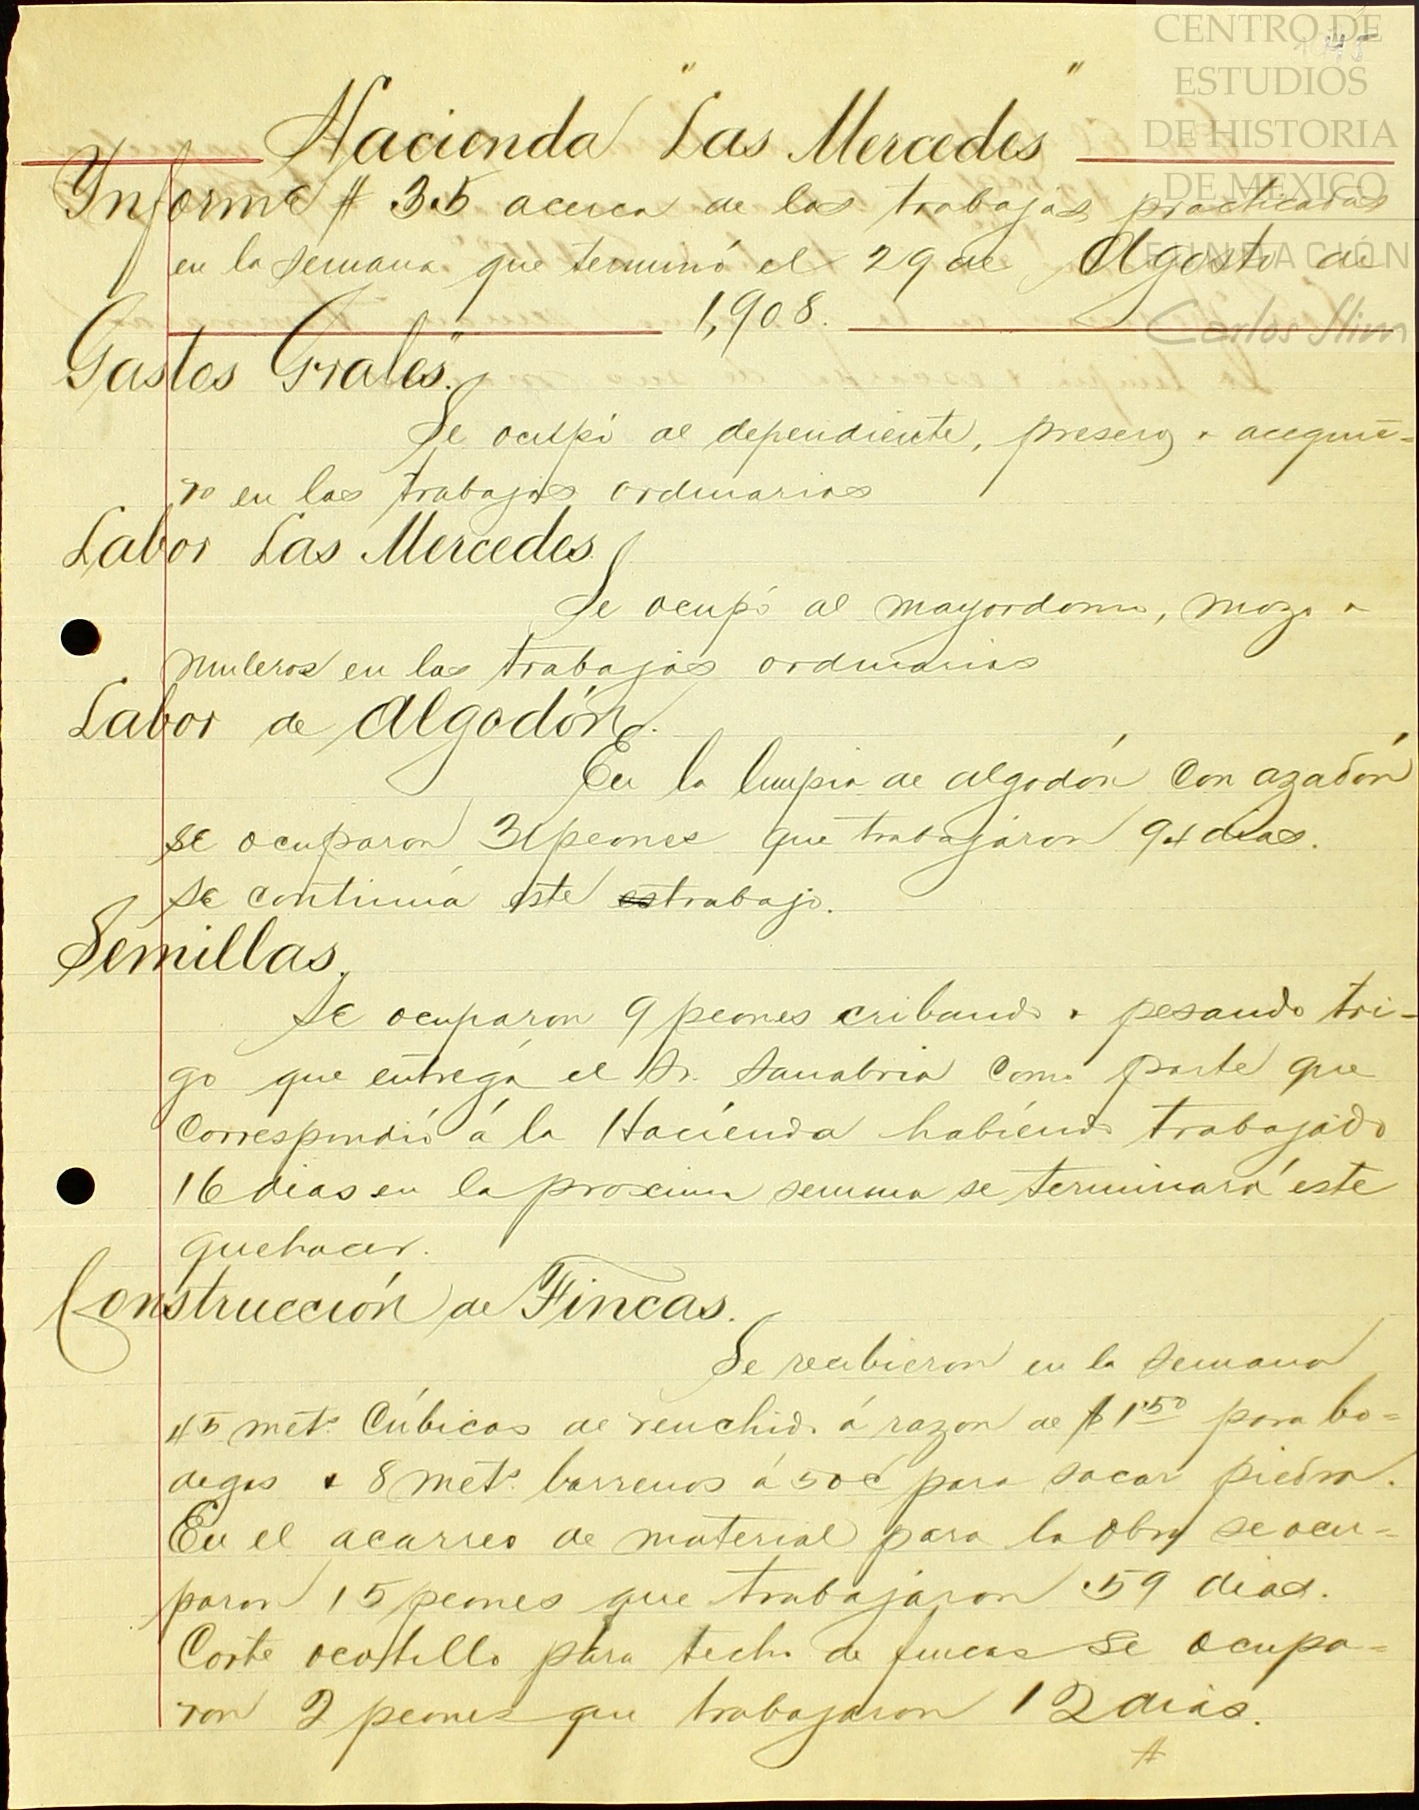 CENTRO DE
ESTUDIOS
DE HISTORIA
DE MEXICO
FUNDACIÓN
Carlos Slim
Hacienda "Las Mercedes"
Ynforme # 35 acerca de los trabajos practicados
en la semana que terminó el 29 de Agosto de
1,908.
Gastos Grales.
Se ocupó al dependiente, presero, y acequie=
ro en los trabajos ordinarios
Labor Las Mercedes.
Se ocupó al mayordomo, mozo y
muleros en los trabajos ordinarios
Labor de Algodón.
En la limpia de algodón con azadón
se ocuparon 31 peones que trabajaron 94 dias.
Se continúa este es trabajo.
Semillas.
Se ocuparon 9 peones cribando y pesando tri-
go que entregá el Sr. Sanabria como parte que
correspondió á la Hacienda habiendo trabajado
16 dias en la proxima semana se terminará este
quehacer.
Construcción de Fincas.
Se recibieron en la semana
45 mets. Cúbicos de renchido á razon de $1.50 para bo=
degas y 8 mets. barrenos á 50c para sacar piedra.
En el acarreo de material para la obra se ocu=
paron 15 peones que trabajaron 59 dias.
Corte ocotillo para techo de fincas se ocupa=
ron 2 peones que trabajaron 12 dias.
#